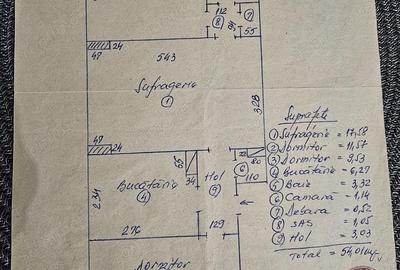 112
⑧
84
⑦
24
55
47
543
Sufragerie
①
328
47
24
55
34
Bucătărie
④
Hol
⑨
⑥
80
110
234
276
129
Dormitor
Suprafețe
① Sufragerie = 17,58
② Dormitor = 11,57
③ Dormitor = 9,53
④ Bucătărie = 6,27
⑤ Baie = 3,32
⑥ Camara = 1,14
⑦ Debara = 0,52
⑧ SAS = 1,05
⑨ Hol = 3,03
Total = 54,01 mp